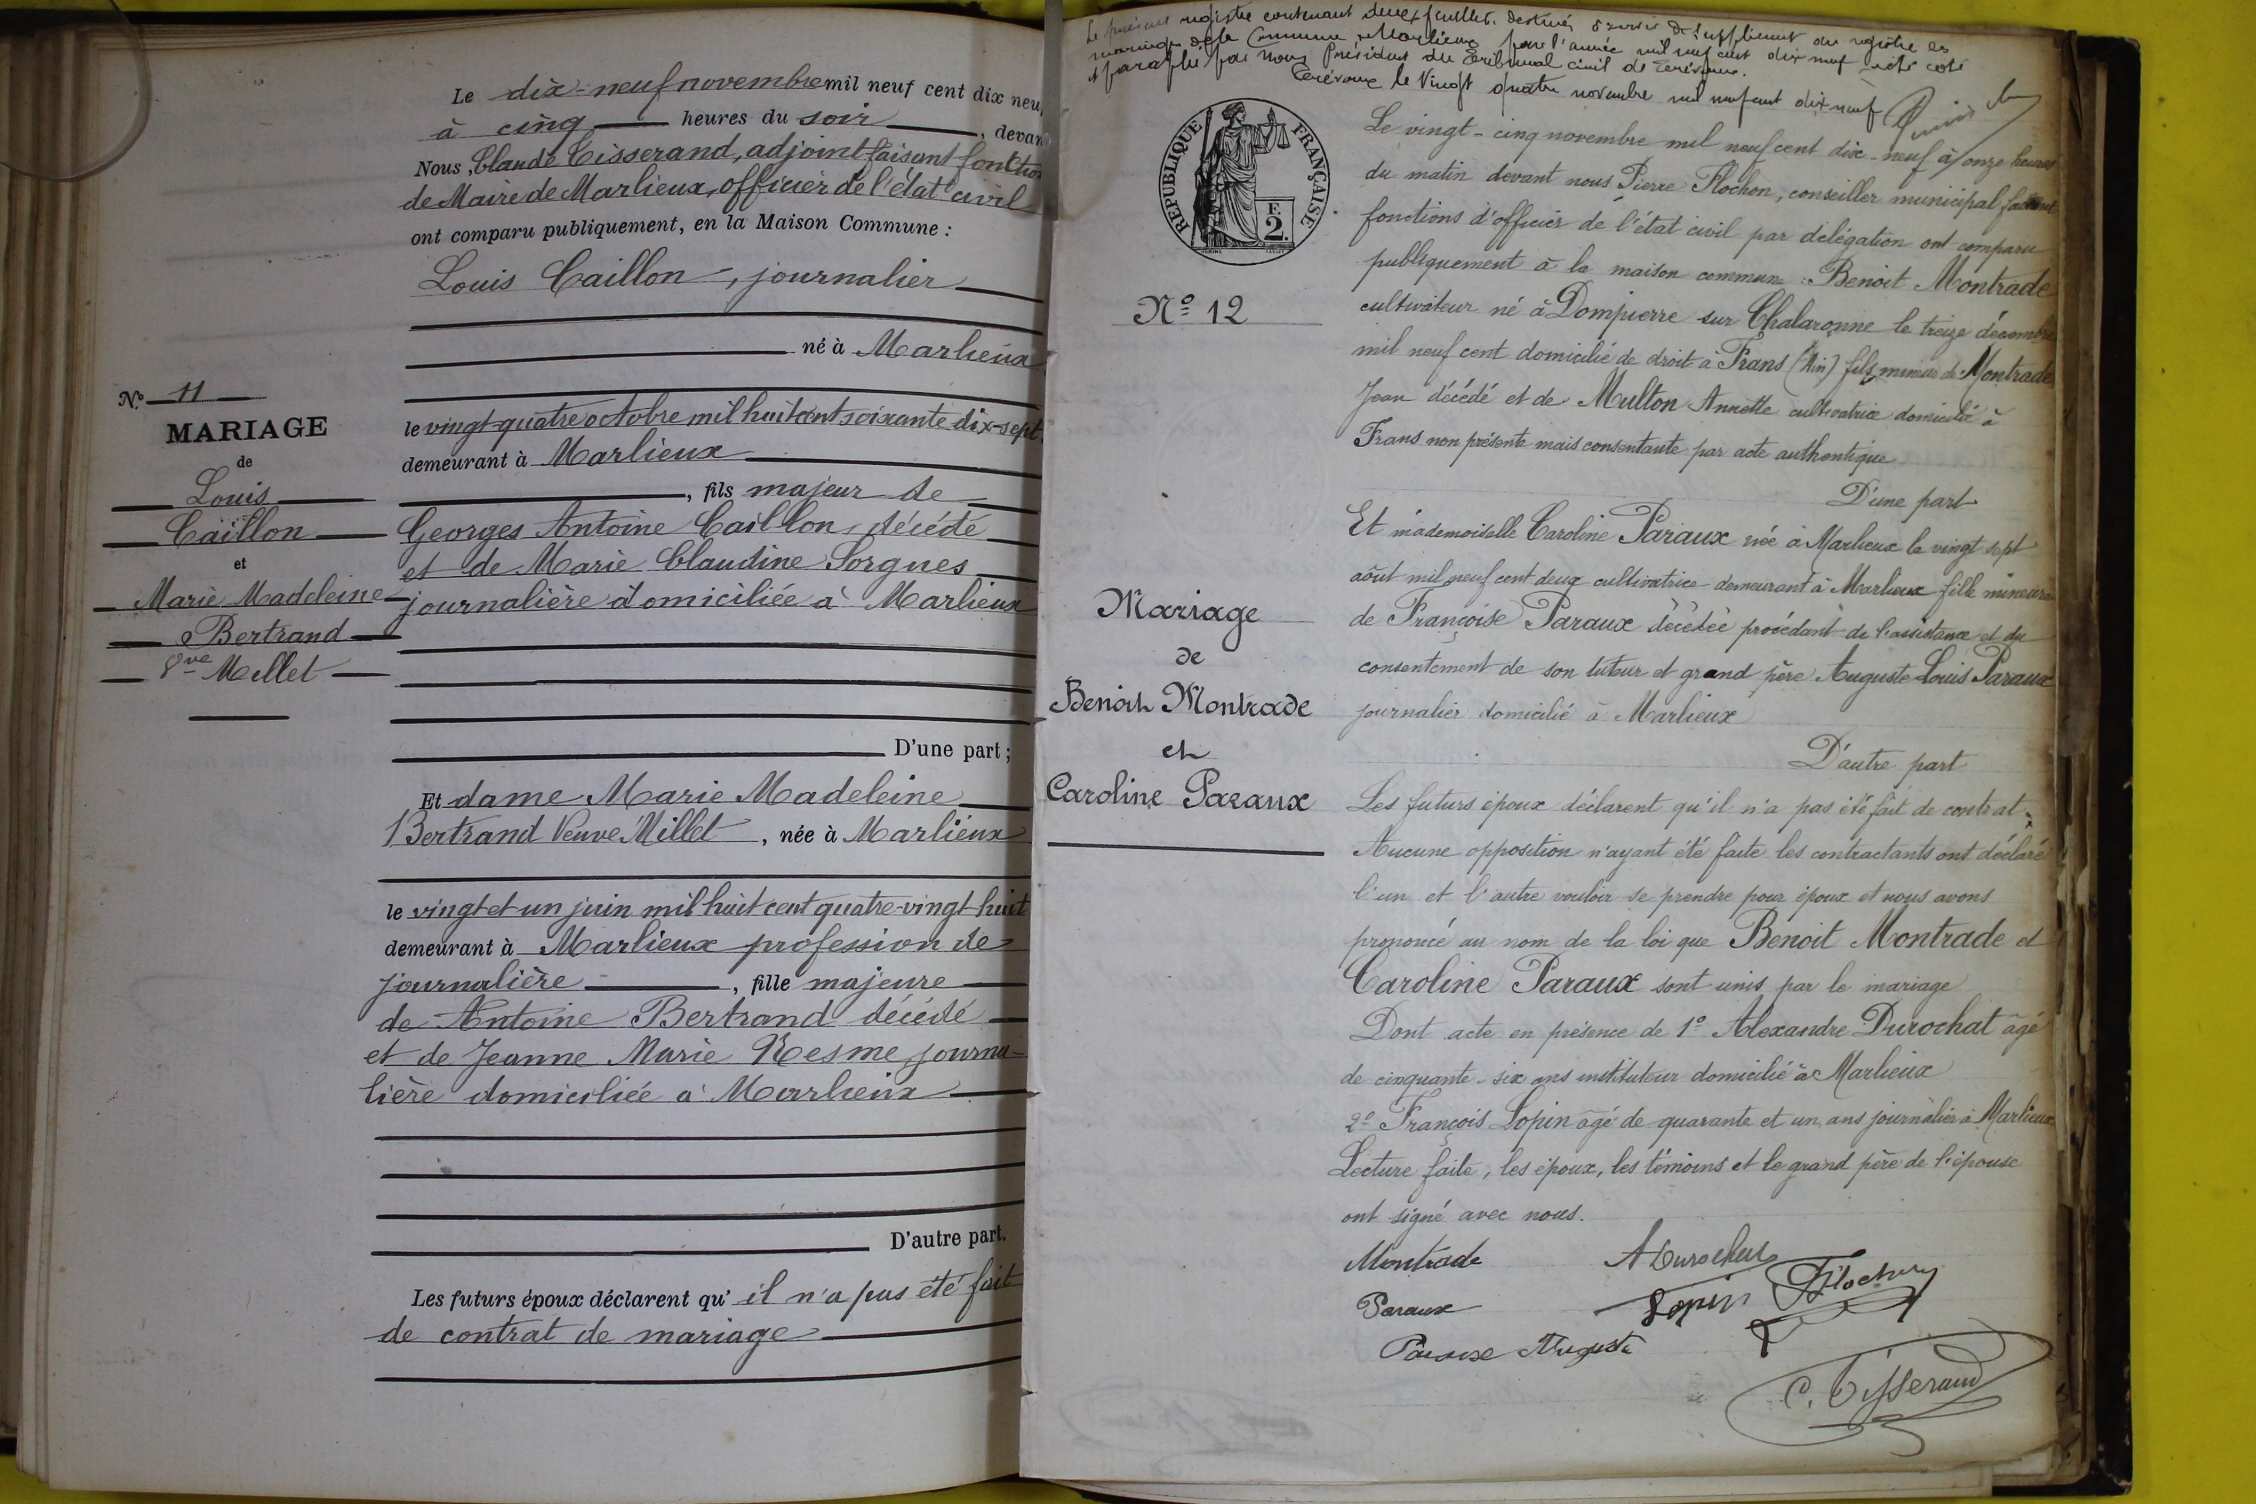 Le dix-neuf novembre mil neuf cent dix neuf
à cinq heures du soir, devant
Nous, Claude Tisserand, adjoint faisant fonction
de Maire de Marlieux, officier de l'état civil
ont comparu publiquement, en la Maison Commune :
Louis Caillon, journalier
né à Marlieux
le vingt-quatre octobre mil huit cent soixante dix-sept
demeurant à Marlieux
, fils majeur de
Georges Antoine Caillon, décédé
et de Marie Claudine Sorgues
journalière domiciliée à Marlieux
D'une part ;
N° 11
MARIAGE
de
Louis
Caillon
et
Marie Madeleine
Bertrand
Vve Millet
Et dame Marie Madeleine
Bertrand Veuve Millet, née à Marlieux
le vingt et un juin mil huit cent quatre-vingt-huit
demeurant à Marlieux profession de
journalière, fille majeure
de Antoine Bertrand décédé
et de Jeanne Marie Resme, journa-
lière domiciliée à Marlieux
D'autre part.
Les futurs époux déclarent qu'il n'a pas été fait
de contrat de mariage
Le présent registre contenant deux feuillets destinés à servir de supplément du registre des
mariages de la Commune de Marlieux pour l'année mil neuf cent dix neuf a été coté
et paraphé par Nous Président du Tribunal civil de Trévoux.
Trévoux le Vingt quatre novembre mil neuf cent dix neuf
RÉPUBLIQUE FRANÇAISE
F.
2.
N° 12
Mariage
de
Benoit Montrade
et
Caroline Paraux
Le vingt-cinq novembre mil neuf cent dix-neuf à onze heures
du matin devant nous Pierre Flochon, conseiller municipal faisant
fonctions d'officier de l'état civil par délégation ont comparu
publiquement à la maison commune : Benoit Montrade
cultivateur né à Dompierre sur Chalaronne le treize décembre
mil neuf cent domicilié de droit à Frans (Ain) fils mineur de Montrade
Jean décédé et de Multon Annette cultivatrice domiciliée à
Frans non présente mais consentante par acte authentique
D'une part
Et mademoiselle Caroline Paraux née à Marlieux le vingt sept
août mil neuf cent deux cultivatrice demeurant à Marlieux fille mineure
de Françoise Paraux décédée procédant de l'assistance et du
consentement de son tuteur et grand père Auguste Louis Paraux
journalier domicilié à Marlieux
D'autre part
Les futurs époux déclarent qu'il n'a pas été fait de contrat.
Aucune opposition n'ayant été faite les contractants ont déclaré
l'un et l'autre vouloir se prendre pour époux et nous avons
prononcé au nom de la loi que Benoit Montrade et
Caroline Paraux sont unis par le mariage
Dont acte en présence de 1° Alexandre Durochat âgé
de cinquante-six ans instituteur domicilié à Marlieux
2° François Lopin âgé de quarante et un ans journalier à Marlieux
Lecture faite, les époux, les témoins et le grand père de l'épouse
ont signé avec nous.
Montrade A Durochat
Paraux Lopin Flochon
Paraux Auguste
C. Tisserand